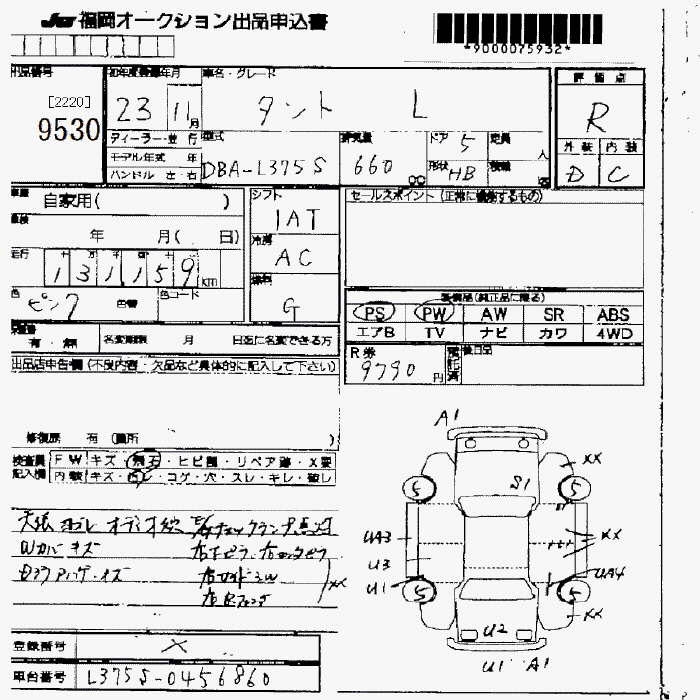 福岡オークション出品申込書
*9000075932*
出品番号
[2220]
9530
初年度登録年月
23 11月
車名・グレード
タント L
評価点
R
外装 内装
D C
ディーラー・並行
モデル年式 年
ハンドル 左・右
型式
DBA-L375S
排気量
660
ドア 5
形状 HB
定員 人
積載
車歴
自家用( )
車検
年 月( 日)
走行
131159km
色
ピンク
色替
色コード
シフト
IAT
冷房
AC
燃料
G
セールスポイント(正常に機能するもの)
装備品(純正品に限る)
PS PW AW SR ABS
エアB TV ナビ カワ 4WD
有・無
名変期限 月 日迄に名変できる方
R券
9790円
後日品
出品店申告欄(不良内容・欠品など具体的に記入して下さい)
修復歴 有(箇所 )
検査員記入欄
FW キズ・飛石・ヒビ割・リペア跡・X要
内装 キズ・ヨゴレ・コゲ・穴・スレ・キレ・破レ
天張ヨゴレ オーディオ欠 E/gチェックランプ点灯
Wカバーキズ
××
A1
S1
××
5 5
UA3
U3
U1
××
UA4
5 5
××
U2
U1 A1
登録番号
×
車台番号
L375S-0456860